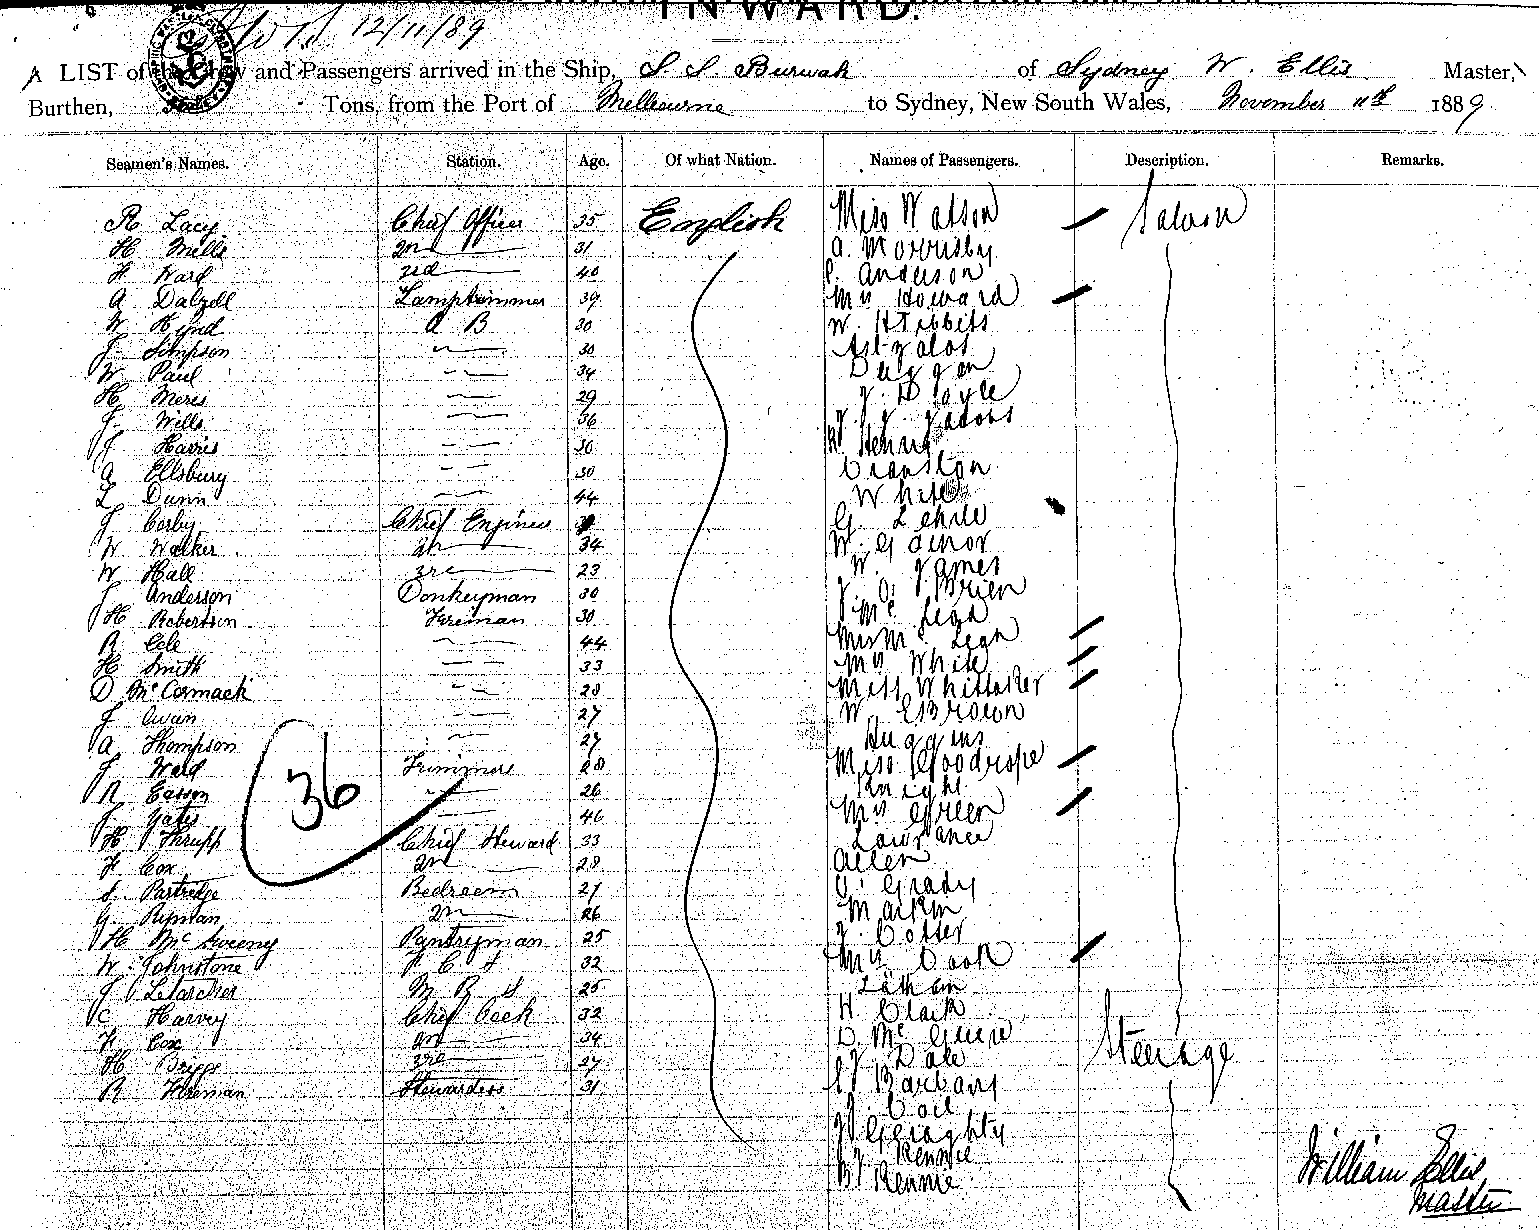 INWARD.
12/11/89
A LIST of the Crew and Passengers arrived in the Ship, S. S. Burwah of Sydney W. Ellis Master,
Burthen, Tons, from the Port of Melbourne to Sydney, New South Wales, November 11th 1889
Seamen's Names. Station. Age. Of what Nation. Names of Passengers. Description. Remarks.
R Lacy Chief Officer 35 English Miss Watson Saloon
H Mills 2n 31 A. Morrisby
F Ward 3rd 40 Anderson
A Dalzell Lamptrimmer 39 Mrs Howard
W Hynd A B 30 W. H Tibbits
J Simpson 30
W Paul 34 Duggan
H Meres 29 J. Doyle
J Wills 36 Jacobs
J Harris 30 Henry
A Ellsbury 30 Cranston
L Dunn 44 White
J Corby Chief Engineer G.
W Walker 2n 34 W. Gainor
W Hall 3rd 23 W. James
J Anderson Donkeyman 30 J. O'Brien
H Robertson Fireman 30 Mc Lean
R Cole 44 Mrs Mc Lean
H Smith 33 Mrs White
D McCormack 28 Miss Whittaker
J Cowan 27 W. Brown
A Thompson 27 Huggins
J Ward Trimmers 28 Miss Woodrope
R Easson 26 Knight
J Yates 46 Mrs Green
H Thrupp Chief Steward 33 Lawrance
F Cox 2n 28 Allen
S. Partridge Bedroom 27 O. Grady
G. Ripman 2n 26 Martin
H McSweeny Pantryman 25 J. Cotter
W Johnstone F C S 32 Mrs Cook
J Letarcher M R S 25 Latham
C Harvey Chief Cook 32 H Clark
F Cox 2n 34 D. McGuire Steerage
H Briggs 3rd 27 Dale
R Hereman Stewardess 31 Barbary
36
Geraghty
Rennie
Rennie
William Ellis
Master